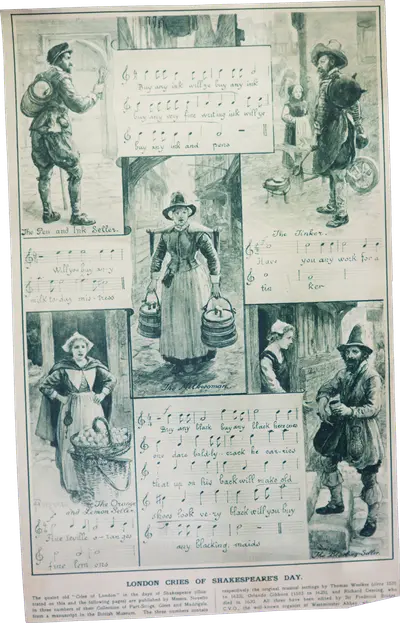 Buy any ink will ye buy any ink
buy any any fine writing ink will ye
buy any ink and pens
The Pen and Ink Seller.
The Tinker.
Have you any work for a
tin ker
Will you buy any
milk to day mis-tress
The Milkwoman.
Buy any black buy any black here comes
one dare boldly crack he car-ries
that up on his back will make old
shoes look ve-ry black will you buy
any blacking, maids
The Orange
and Lemon Seller.
Fine Seville o-ran-ges
fine lem ons
The Blacking Seller.
LONDON CRIES OF SHAKESPEARE'S DAY.
The quaint old "Cries of London" in the days of Shakespeare
trated on this and the following pages) are published by Messrs. Novello
in three numbers of their Collection of Part-Songs, Glees and Madrigals,
from a manuscript in the British Museum. The three numbers contain
respectively the original musical settings by Thomas Weelkes
Orlando Gibbons (1583 to 1625), and Richard Deering, who
died in 1630. All these have been edited by Sir Frederick
C.V.O., the well-known organist of Westminster Abbey.